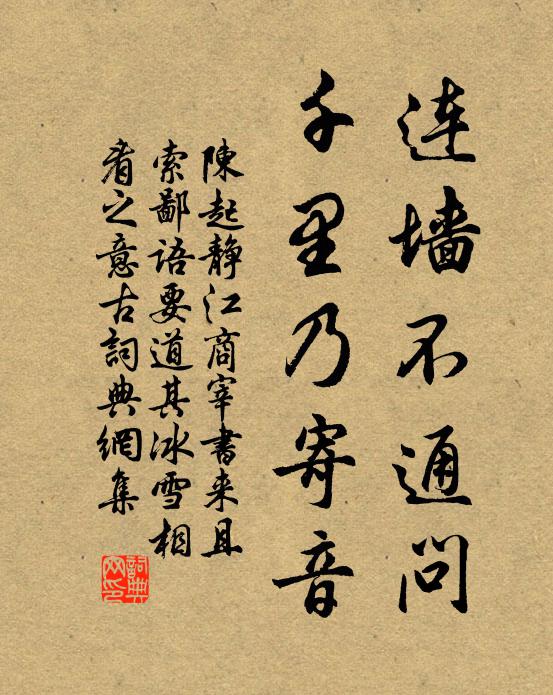 连墙不通问
千里乃寄音
陳起静江商宰書来且
索鄙语要道其冰雪相
看之意古詞典網集
詞典网印